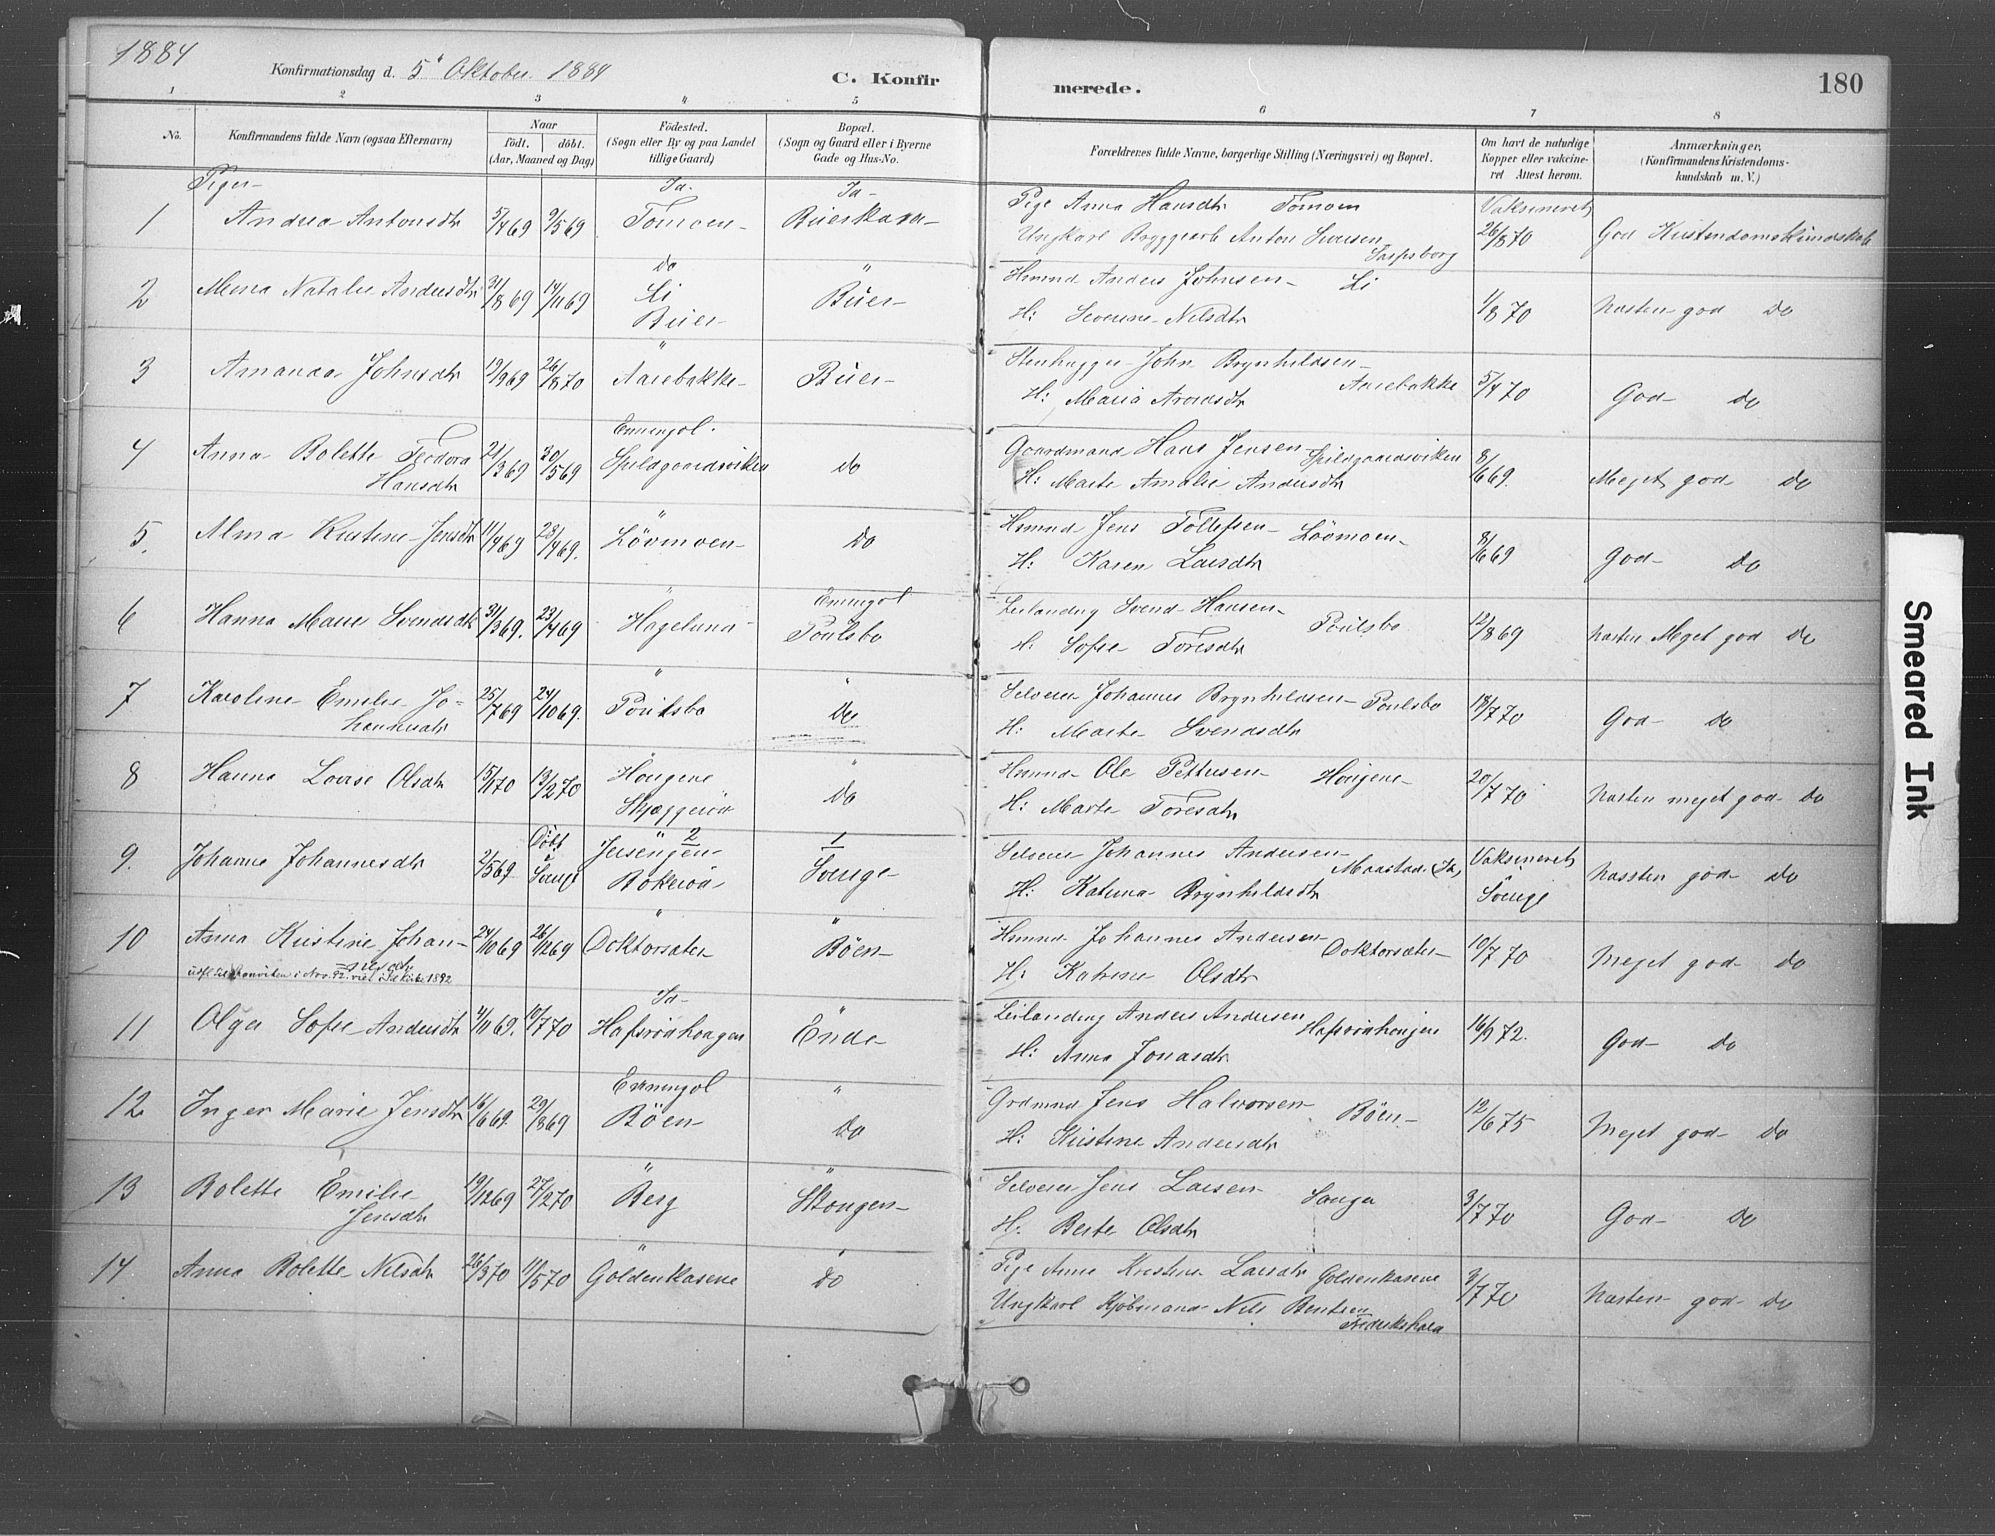 1884
Konfirmationsdag d. 5' Oktober 1884
C. Konfirmerede.
180
1 2 3 4 5 6 7 8
No.
Konfirmandens fulde Navn (ogsaa Efternavn)
Naar
født. døbt.
(Aar, Maaned og Dag)
Fødested.
(Sogn eller By og paa Landet
tillige Gaard)
Bopæl.
(Sogn og Gaard eller i Byerne
Gade og Hus-No.
Forældrenes fulde Navne, borgerlige Stilling (Næringsvei) og Bopæl.
Om havt de naturlige
Kopper eller vakcine-
ret Attest herom.
Anmærkninger.
(Konfirmandens Kristendoms-
kundskab m. V.)
Piger-
1 Andrea Antonsdtr 5/4 69 9/5 69 Id. Tomoen- Id- Buerskasa- Pige Anna Hansdtr Tomoen
Ungkarl Bryggearb Anton Iversen Sarpsborg Vaksineret 26/8 70 God Kristendomskundskab
2 Mina Natalie Andersdtr 31/8 69 14/11 69 Do Li Buer- " Buer- Hmmd Anders Johnsen- Li
H: Severine Nilsdtr 1/8 70 næsten god Do
3 Amanda Johnsdtr 19/9 69 26/8 70 " Aarebakke- Buer- Stenhugger John Brynhildsen-
H: Maria Arnesdtr Aarebakke 5/4 70 God- Do
4 Anna Bolette Teodora
Hansdtr 21/3 69 30/5 69 Enningdl. Spildgaardsviken Do Gaardmand Hans Jensen- Spildgaardsviken
H: Marte Amalie Andersdtr 8/6 69. Meget god Do
5. Alma Kristine Jensdtr 11/4 69 23/4 69. " Lövmoen- Do Hmmd Jens Tollefsen- Lövmoen-
H: Karen Larsdtr 8/6 69 God- Do
6 Hanna Marie Svendsdtr 31/3 69. 23/4 69 " Hagelund Enningdl Poulsbo Leilænding Svend Hansen- Poulsbo
H: Sofie Toresdtr 12/8 69 næsten Meget god Do
7 Karoline Emilie Jo-
hannesdtr 25/7 69 24/10 69. " Poulsbo " Do Selveier Johannes Brynhildsen- Poulsbo
H: Marte Svendsdtr 18/7 70 God- Do
8 Hanna Lovise Olsdtr 15/1 70 13/2 70 Hougene Skjæggeröd " Do Hmmd Ole Pettersen- Hougene-
H: Marte Toresdtr 20/7 70 næsten meget god- Do
9. Johanne Johannesdtr 2/5 69 Döbt i Sverige " 2 Jersengen- Bokeröd 1 Sverige- Selveier Johannes Andersen- Maastad (Id)
H: Katrina Brynhildsdtr Vaksineret Sverige næsten god- Do
10 Anna Kristine Johan-
nesdtr 24/10 69 26/12 69 " Doktorsæter " Böen- Hmmd Johannes Andersen- Doktorsæter-
H: Katrine Olsdtr 10/7 70 Meget god- Do
11 Olga Sofie Andersdtr 4/10 69. 10/7 70 Id- Hafsrödhougen Ende- Leilænding Anders Andersen Hafsrödhougen
H: Anna Jonasdtr 16/9 72. God- Do
12 Inger Marie Jensdtr 16/6 69. 29/8 69 Enningdl Böen- " Do Grdmnd Jens Halvorsen- Böen-
H: Kristine Andersdtr 12/6 75 Meget god- Do
13 Bolette Emilie
Jensdtr 19/12 69 27/2 70 " Berg " Skougen- Selveier Jens Larsen- Sanga
H: Berte Olsdtr 3/7 70 God- Do
14 Anna Bolette Nilsdtr 26/3 70 11/5 70 " Goldenkasene Do Pige Anne Kristine Larsdtr Goldenkasene
Ungkarl Kjöbmand Nils Bentsen Fredrikshald 3/7 70 næsten god- Do
Smeared Ink